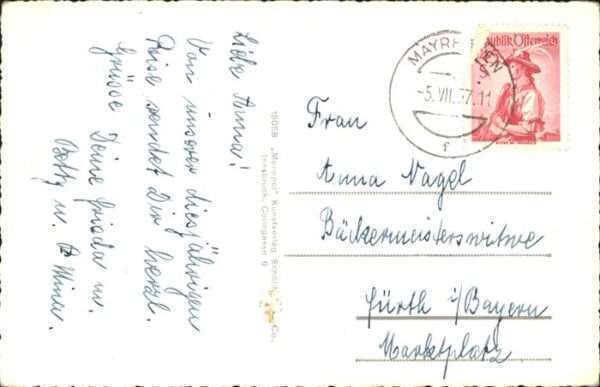 Liebe Anna!
Von unserer diesjährigen
Reise sendet Dir herzl.
Grüsse Deine Frieda u.
Betty u. Mina.
15058 „Monopol" Kunstverlag
Innsbruck,
6
Co.
MAYRHOFEN
-5.VII.57.11
f
Republik Österreich
Frau
Anna Nagel
Bäckermeisterswitwe
Fürth i/Bayern
Marktplatz